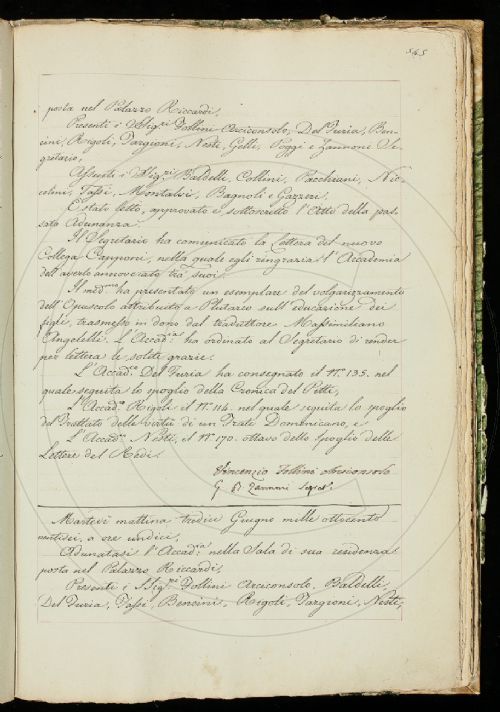 545
posta nel Palazzo Riccardi,
Presenti i SSig.ri Follini Arciconsolo, Del Furia, Ben-
cini, Rigoli, Targioni, Nesti, Gelli, Poggi e Zannoni Se-
gretario,
Assenti i SSig.ri Baldelli, Collini, Pacchiani, Nic-
colini, Fossi, Montalvi, Bagnoli e Gazzeri,
È stato letto, approvato e sottoscritto l'Atto della pas-
sata Adunanza.
Il Segretario ha comunicato la Lettera del nuovo
Collega Capponi, nella quale egli ringrazia l'Accademia
dell'averlo annoverato tra' suoi.
Il med.mo ha presentato un esemplare del volgarizzamento
dell'Opuscolo attribuito a Plutarco sull'educazione dei
figli, trasmesso in dono dal traduttore Massimiliano
Angelelli. L'Accad.ia ha ordinato al Segretario di render
per lettera le solite grazie.
L'Accad.co Del Furia ha consegnato il N.o 135. nel
quale seguita lo spoglio della Cronica del Pitti,
L'Accad.co Rigoli il N.o 114. nel quale seguita lo spoglio
del Trattato delle virtù di un Frate Domenicano, e
L'Accad.co Nesti, il N.o 170. ottavo dello spoglio delle
Lettere del Redi.
Vincenzio Follini Arciconsolo
G. B. Zannoni Segret.
Martedì mattina tredici Giugno mille ottocento
ventisei, a ore undici,
Adunatasi l'Accad.ia nella Sala di sua residenza
posta nel Palazzo Riccardi,
Presenti i SSig.ri Follini Arciconsolo, Baldelli,
Del Furia, Fossi, Bencini, Rigoli, Targioni, Nesti,